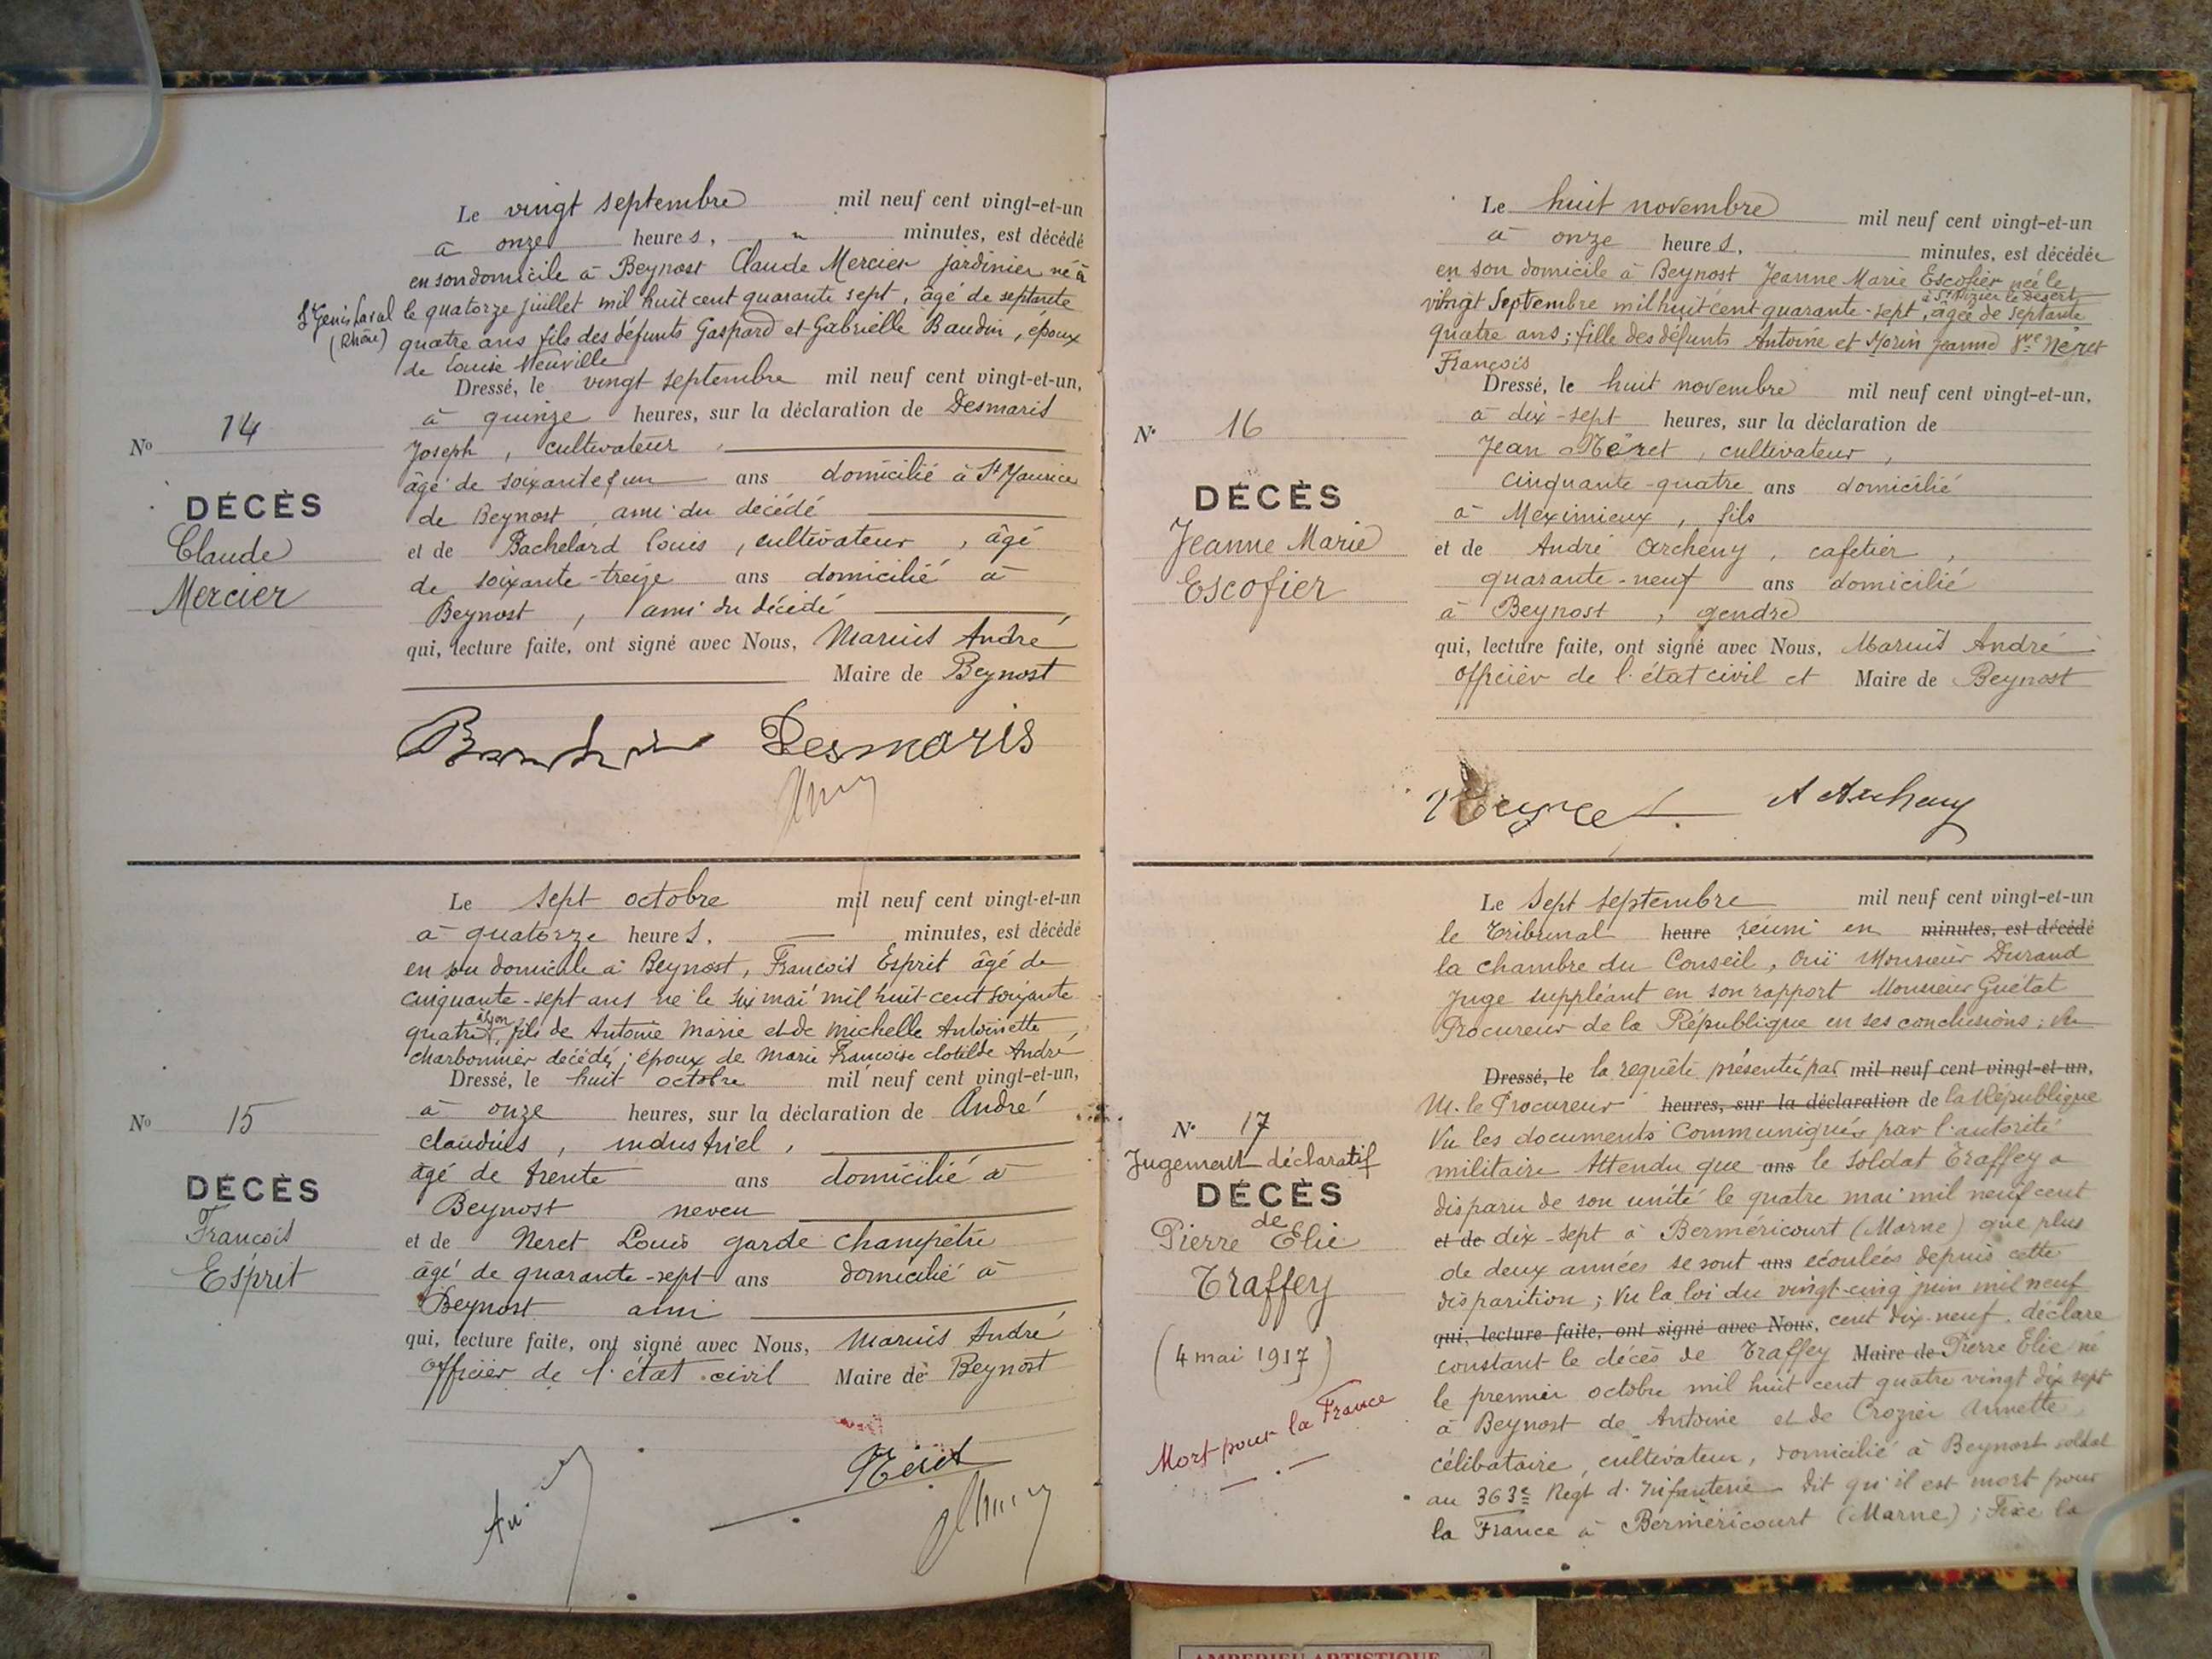 Le vingt septembre mil neuf cent vingt-et-un
à onze heures, " minutes, est décédé
en son domicile à Beynost Claude Mercier jardinier né à
St Genis Laval le quatorze juillet mil huit cent quarante sept, âgé de septante
(Rhône) quatre ans fils des défunts Gaspard et Gabrielle Baudin, époux
de Louise Neuville
Dressé, le vingt septembre mil neuf cent vingt-et-un,
à quinze heures, sur la déclaration de Desmaris
Joseph, cultivateur
âgé de soixante et un ans domicilié à St Maurice
de Beynost, ami du décédé
et de Bachelard Louis, cultivateur, âgé
de soixante-treize ans domicilié à
Beynost, ami du décédé
qui, lecture faite, ont signé avec Nous, Marius André
Maire de Beynost
No 14
DÉCÈS
Claude
Mercier
Desmaris
Le sept octobre mil neuf cent vingt-et-un
à quatorze heures, minutes, est décédé
en son domicile à Beynost, François Esprit âgé de
cinquante-sept ans né le six mai mil huit cent soixante
quatre à Lyon, fils de Antoine Marie et de Michelle Antoinette
charbonnier décédés; époux de Marie Françoise Clotilde André
Dressé, le huit octobre mil neuf cent vingt-et-un,
à onze heures, sur la déclaration de André
Claudius, industriel,
âgé de trente ans domicilié à
Beynost neveu
et de Neret Louis garde champêtre
âgé de quarante-sept ans domicilié à
Beynost ami
qui, lecture faite, ont signé avec Nous, Marius André
Officier de l'état civil Maire de Beynost
No 15
DÉCÈS
François
Esprit
Néret
Le huit novembre mil neuf cent vingt-et-un
à onze heures, minutes, est décédée
en son domicile à Beynost Jeanne Marie Escofier née le
vingt Septembre mil huit cent quarante-sept, à St Nizier le Désert, âgée de septante
quatre ans; fille des défunts Antoine et Morin Jeanne Vve Néret
François
Dressé, le huit novembre mil neuf cent vingt-et-un,
à dix-sept heures, sur la déclaration de
Jean Néret, cultivateur,
cinquante-quatre ans domicilié
à Meximieux, fils
et de André Archeny, cafetier,
quarante-neuf ans domicilié
à Beynost, gendre
qui, lecture faite, ont signé avec Nous, Marius André
Officier de l'état civil et Maire de Beynost
No 16
DÉCÈS
Jeanne Marie
Escofier
Neyret A Archeny
Le Sept septembre mil neuf cent vingt-et-un
le Tribunal heure réuni en minutes, est décédé
la chambre du Conseil, Ouï Monsieur Durand
Juge suppléant en son rapport Monsieur Guétat
Procureur de la République en ses conclusions; Vu
Dressé, le la requête présentée par mil neuf cent vingt-et-un,
M. le Procureur heures, sur la déclaration de la République
Vu les documents communiqués par l'autorité
militaire Attendu que ans le soldat Traffey a
disparu de son unité le quatre mai mil neuf cent
et de dix-sept à Berméricourt (Marne) que plus
de deux années se sont ans écoulées depuis cette
disparition; Vu la loi du vingt-cinq juin mil neuf
qui, lecture faite, ont signé avec Nous, cent dix-neuf, déclare
constant le décès de Traffey Maire de Pierre Elie né
le premier octobre mil huit cent quatre vingt dix sept
à Beynost de Antoine et de Crozier Annette,
célibataire, cultivateur, domicilié à Beynost soldat
au 363e Regt d'Infanterie dit qu'il est mort pour
la France à Berméricourt (Marne); Fixe la
No 17
Jugement déclaratif
DÉCÈS
de
Pierre Elie
Traffey
(4 mai 1917)
Mort pour la France
AMBERIEU ARTISTIQUE